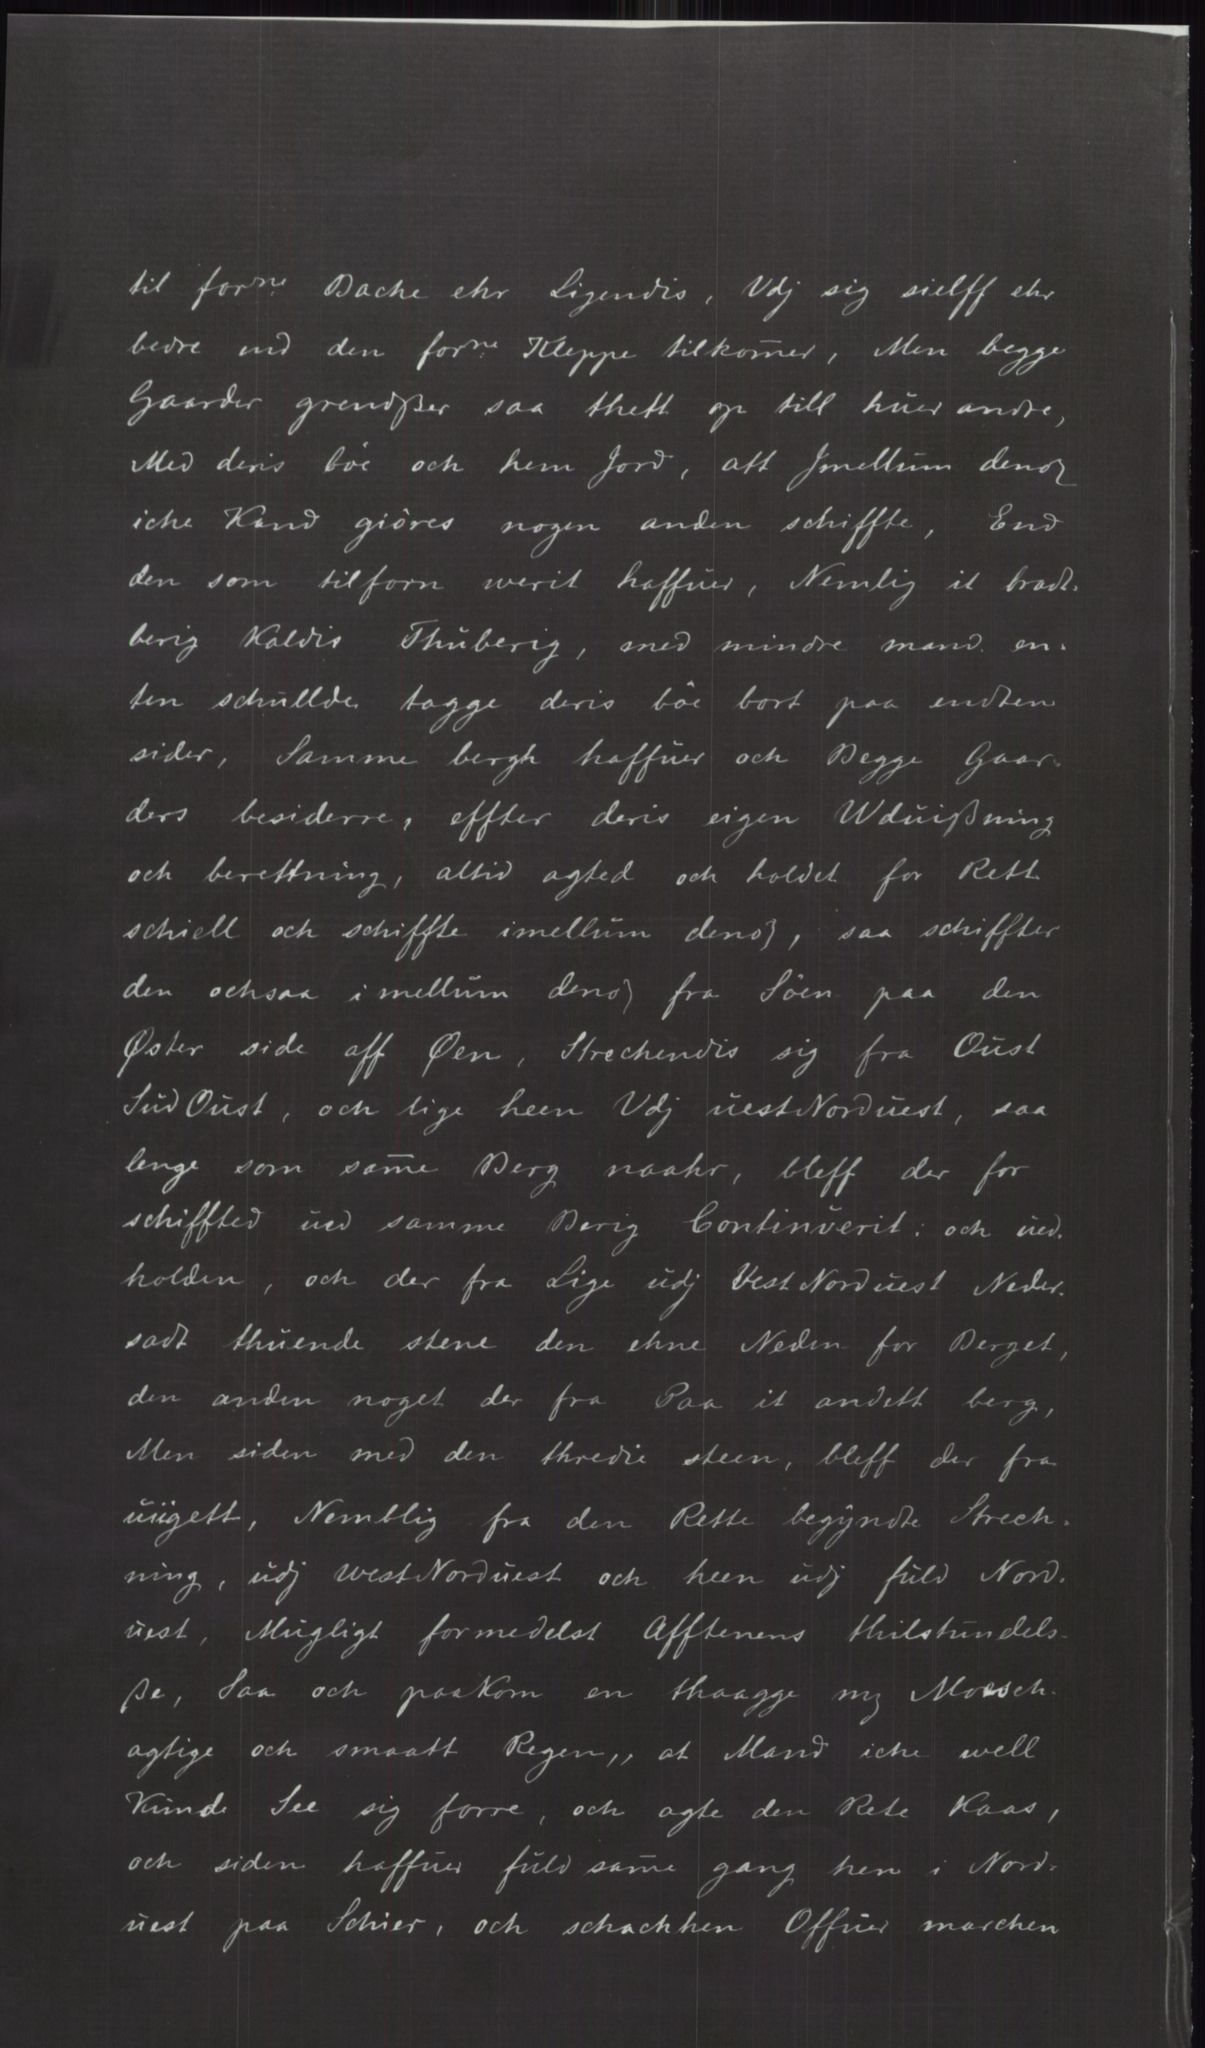 til forne Bache ehr Ligendis, Vdj sig sielff ehr
bedre end den forne Kleppe tilkom̄er, Men begge
Gaarder grendßer saa thett op till huer andre,
Med deris böe och hem Jord, att Jmellum denom
iche Kand giöres nogen anden schiffte, End
den som tilforn werit haffuer, Nemlig it bradt-
berig Kaldis Thuberig, med mindre mand en-
ten schullde tagge deris böe bort paa endten
sider, Samme bergh haffuer och Begge Gaar-
ders besiderre, effter deris eigen Wduißning
och berettning, altid agted och holdet for Rett
schiell och schiffte imellum denom, saa schiffter
den ochsaa imellum denom fra Söen paa den
Øster side aff Øen, Strechendis sig fra Oust
Sud Oust, och lige heen Vdj uest Norduest, saa
lenge som sam̄e Berg naahr, bleff der for
schiffted ued samme Berig Continuerit: och ued-
holden, och der fra Lige udj Vest Norduest Neder-
sadt thuende stene den ehne Neden for Berget,
den anden noget der fra Paa it andett berg,
Men siden med den thredie steen, bleff der fra
uiigett, Nemblig fra den Rette begyndte Strech-
ning, udj west Norduest och heen udj fuld Nord-
uest, Mugligt formedelst Afftenens thilstundels-
ße, Saa och paakom en thaagge mz Moesch-
agtige och smaatt Regen,, at Mand iche well
Kunde See sig forre, och agte den Rete Kaas,
och siden haffuer fuld sam̄e gang hen i Nord-
uest paa Schier, och schachhen Offuer marchen